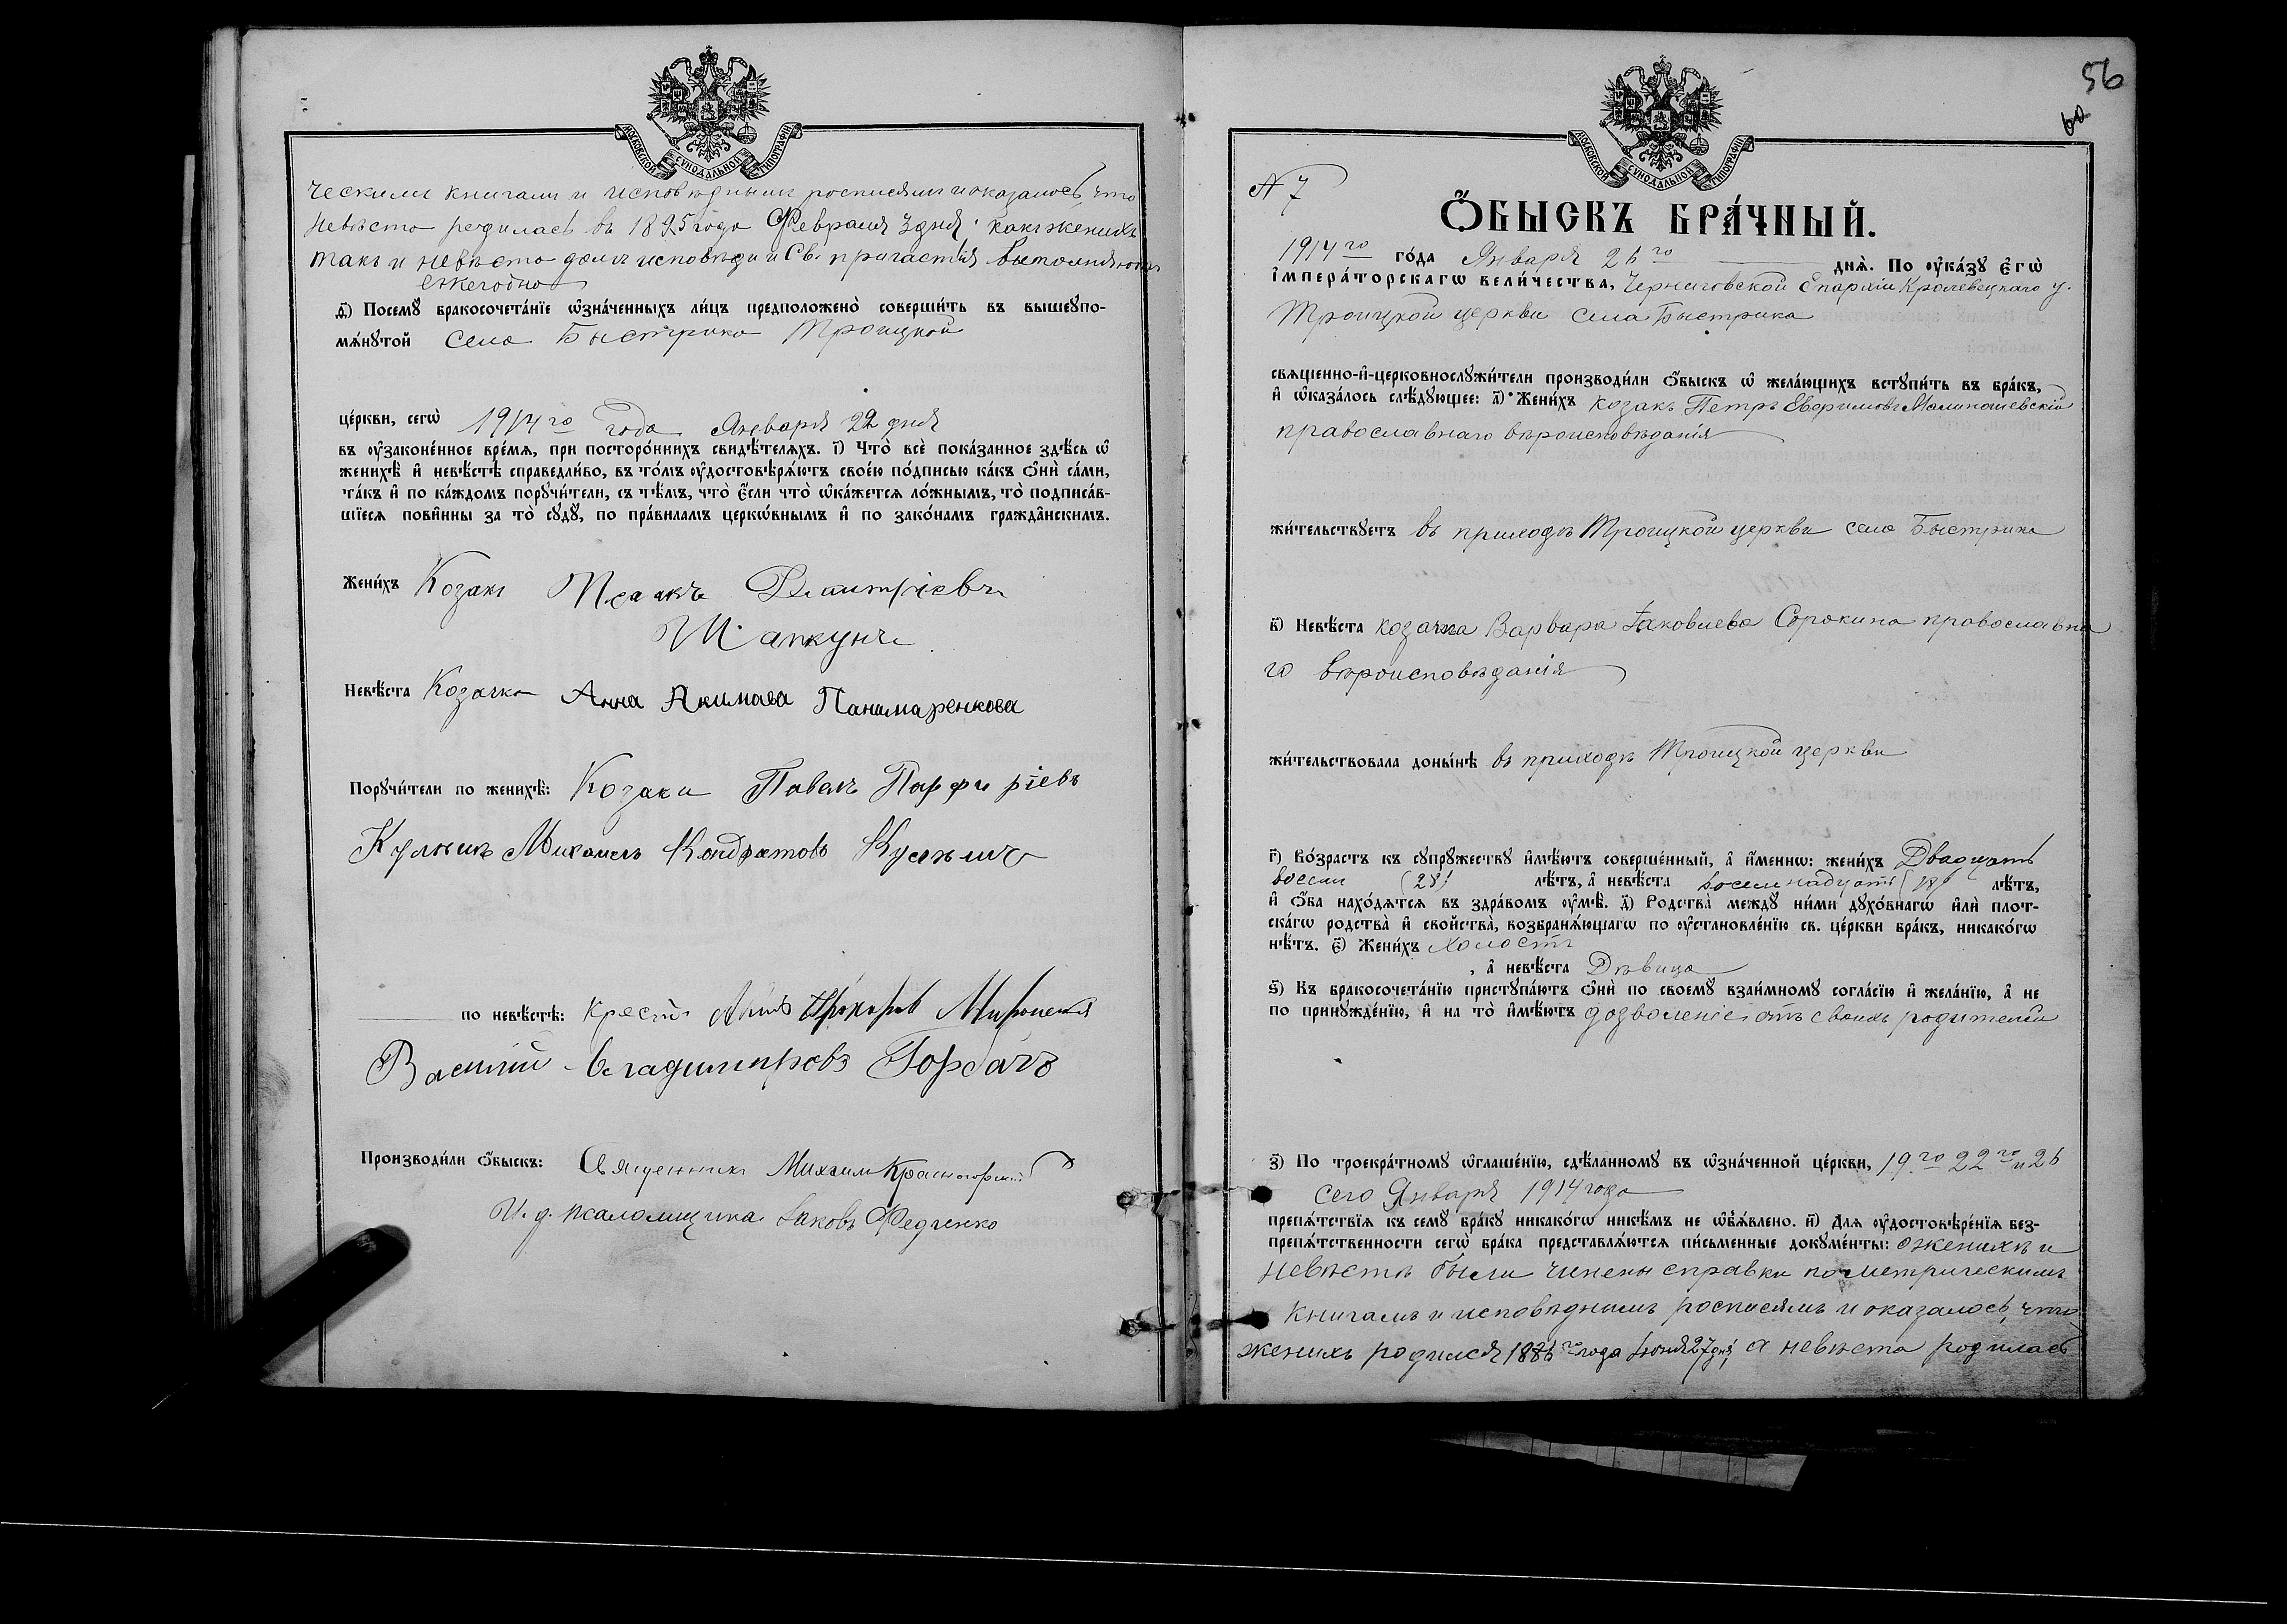 МОСКОВСКОЙ СѴНОДАЛЬНОЙ ТИПОГРАФІИ
ческими книгами и исповѣднымъ росписямъ и оказалось, что
невѣста родилась въ 1895 года Февраля 3 дня; какъ женихъ
такъ и невѣста долгъ исповѣди и Св. причастія выполняютъ
ежегодно
д҃) Посемꙋ̀ бракосочета́нїе ѡ҆зна́ченныхъ ли́цъ предположено̀ соверши́ть въ вышеꙋпо-
мѧ́нꙋтой села Быстрика Троицкой
це́ркви, сегѡ̀ 1914го года Января 22 дня
въ ᲂу҆законе́нное вре́мѧ, при посторо́ннихъ свидѣ́телѧхъ. і҃) Что̀ всѐ пока́занное здѣ́сь ѡ҆
женихѣ̀ и҆ невѣ́стѣ справедли́во, въ то́мъ ᲂу҆достовѣрѧ́ютъ свое́ю по́дписью ка́къ ѻ҆нѝ са́ми,
та́къ и҆ по ка́ждомъ порꙋчи́тели, съ тѣ́мъ, что̀ є҆́сли что̀ ѡ҆ка́жетсѧ ло́жнымъ, то̀ подписа́в-
шїесѧ пови́нны за то̀ сꙋдꙋ̀, по пра́виламъ церкѡ́внымъ и҆ по зако́намъ гражда́нскимъ.
Жени́хъ Козакъ Исаакъ Дмитріевъ
Шапкунъ
Невѣ́ста Козачка Анна Акимава Панамаренкова
Порꙋчи́тели по женихѣ̀: Козаки Павелъ Парфиріевъ
Кулникъ Михаилъ Кондратовъ
по невѣ́стѣ: Крест.
Василій Владимировъ Горбачъ
Производи́ли ѻ҆́быскъ: Священникъ Михаилъ Красногорскій
И. д. псаломщика Іаковъ Федченко
56
60
МОСКОВСКОЙ СѴНОДАЛЬНОЙ ТИПОГРАФІИ
N 7
Ѻ҆́БЫСКЪ БРА́ЧНЫЙ.
1914го го́да Января 26го днѧ̀. По ᲂу҆ка́зꙋ є҆гѡ̀
і҆мпера́торскагѡ вели́чества, Черниговской Епархіи Кролевецкаго у.
Троицкой церкви села Быстрика
свѧще́нно-и҆-церковнослꙋжи́тели производи́ли ѻ҆́быскъ ѡ҆ жела́ющихъ встꙋпи́ть въ бра́къ,
и҆ ѡ҆каза́лось слѣ́дꙋющее: а҃) Жени́хъ козакъ Петръ Ефримовъ Малиношевскій
православнаго вѣроисповѣданія
жи́тельствꙋетъ въ приходѣ Троицкой церкви села Быстрика
в҃) Невѣ́ста козачка Варвара Іаковлева Сорокина православна
го вѣроисповѣданія
жи́тельствовала доны́нѣ въ приходѣ Троицкой церкви
г҃) Во́зрастъ къ сꙋпрꙋ́жествꙋ и҆мѣ́ютъ соверше́нный, а҆ и҆́меннѡ: жени́хъ Двадцать
восемь (28) лѣ́тъ, а҆ невѣ́ста восемнадцать (18) лѣ́тъ,
и҆ ѻ҆́ба нахо́дѧтсѧ въ здра́вомъ ᲂу҆мѣ̀. д҃) Родства̀ междꙋ̀ ни́ми дꙋхо́внагѡ и҆лѝ плот-
ска́гѡ родства̀ и҆ сво́йства̀, возбранѧ́ющагѡ по ᲂу҆становле́нїю св. це́ркви бра́къ, никако́гѡ
нѣ́тъ. є҃) Жени́хъ холостъ
, а҆ невѣ́ста Дѣвица
ѕ҃) Къ бракосочета́нїю пристꙋпа́ютъ ѻ҆нѝ по своемꙋ̀ взаи́мномꙋ согла́сїю и҆ жела́нїю, а҆ не
по принꙋжде́нїю, и҆ на то̀ и҆мѣ́ютъ дозволеніе отъ своихъ родителей
з҃) По троекра́тномꙋ ѡ҆глаше́нїю, сдѣ́ланномꙋ въ ѡ҆зна́ченной це́ркви, 19го 22го и 26
сего Января 1914 года
препѧ́тствїѧ къ семꙋ̀ бра́кꙋ никако́гѡ никѣ́мъ не ѡ҆б̾ѧ́влено. и҃) Для ᲂу҆достовѣре́нїѧ без-
препѧ́тственности сегѡ̀ бра́ка представлѧ́ютсѧ пи́сьменные докꙋме́нты: о женихѣ и
невѣстѣ были чинены справки по метрическимъ
книгамъ и исповѣднымъ росписямъ и оказалось, что
женихъ родился 1886го года Іюня 27 дня, а невѣста родилась